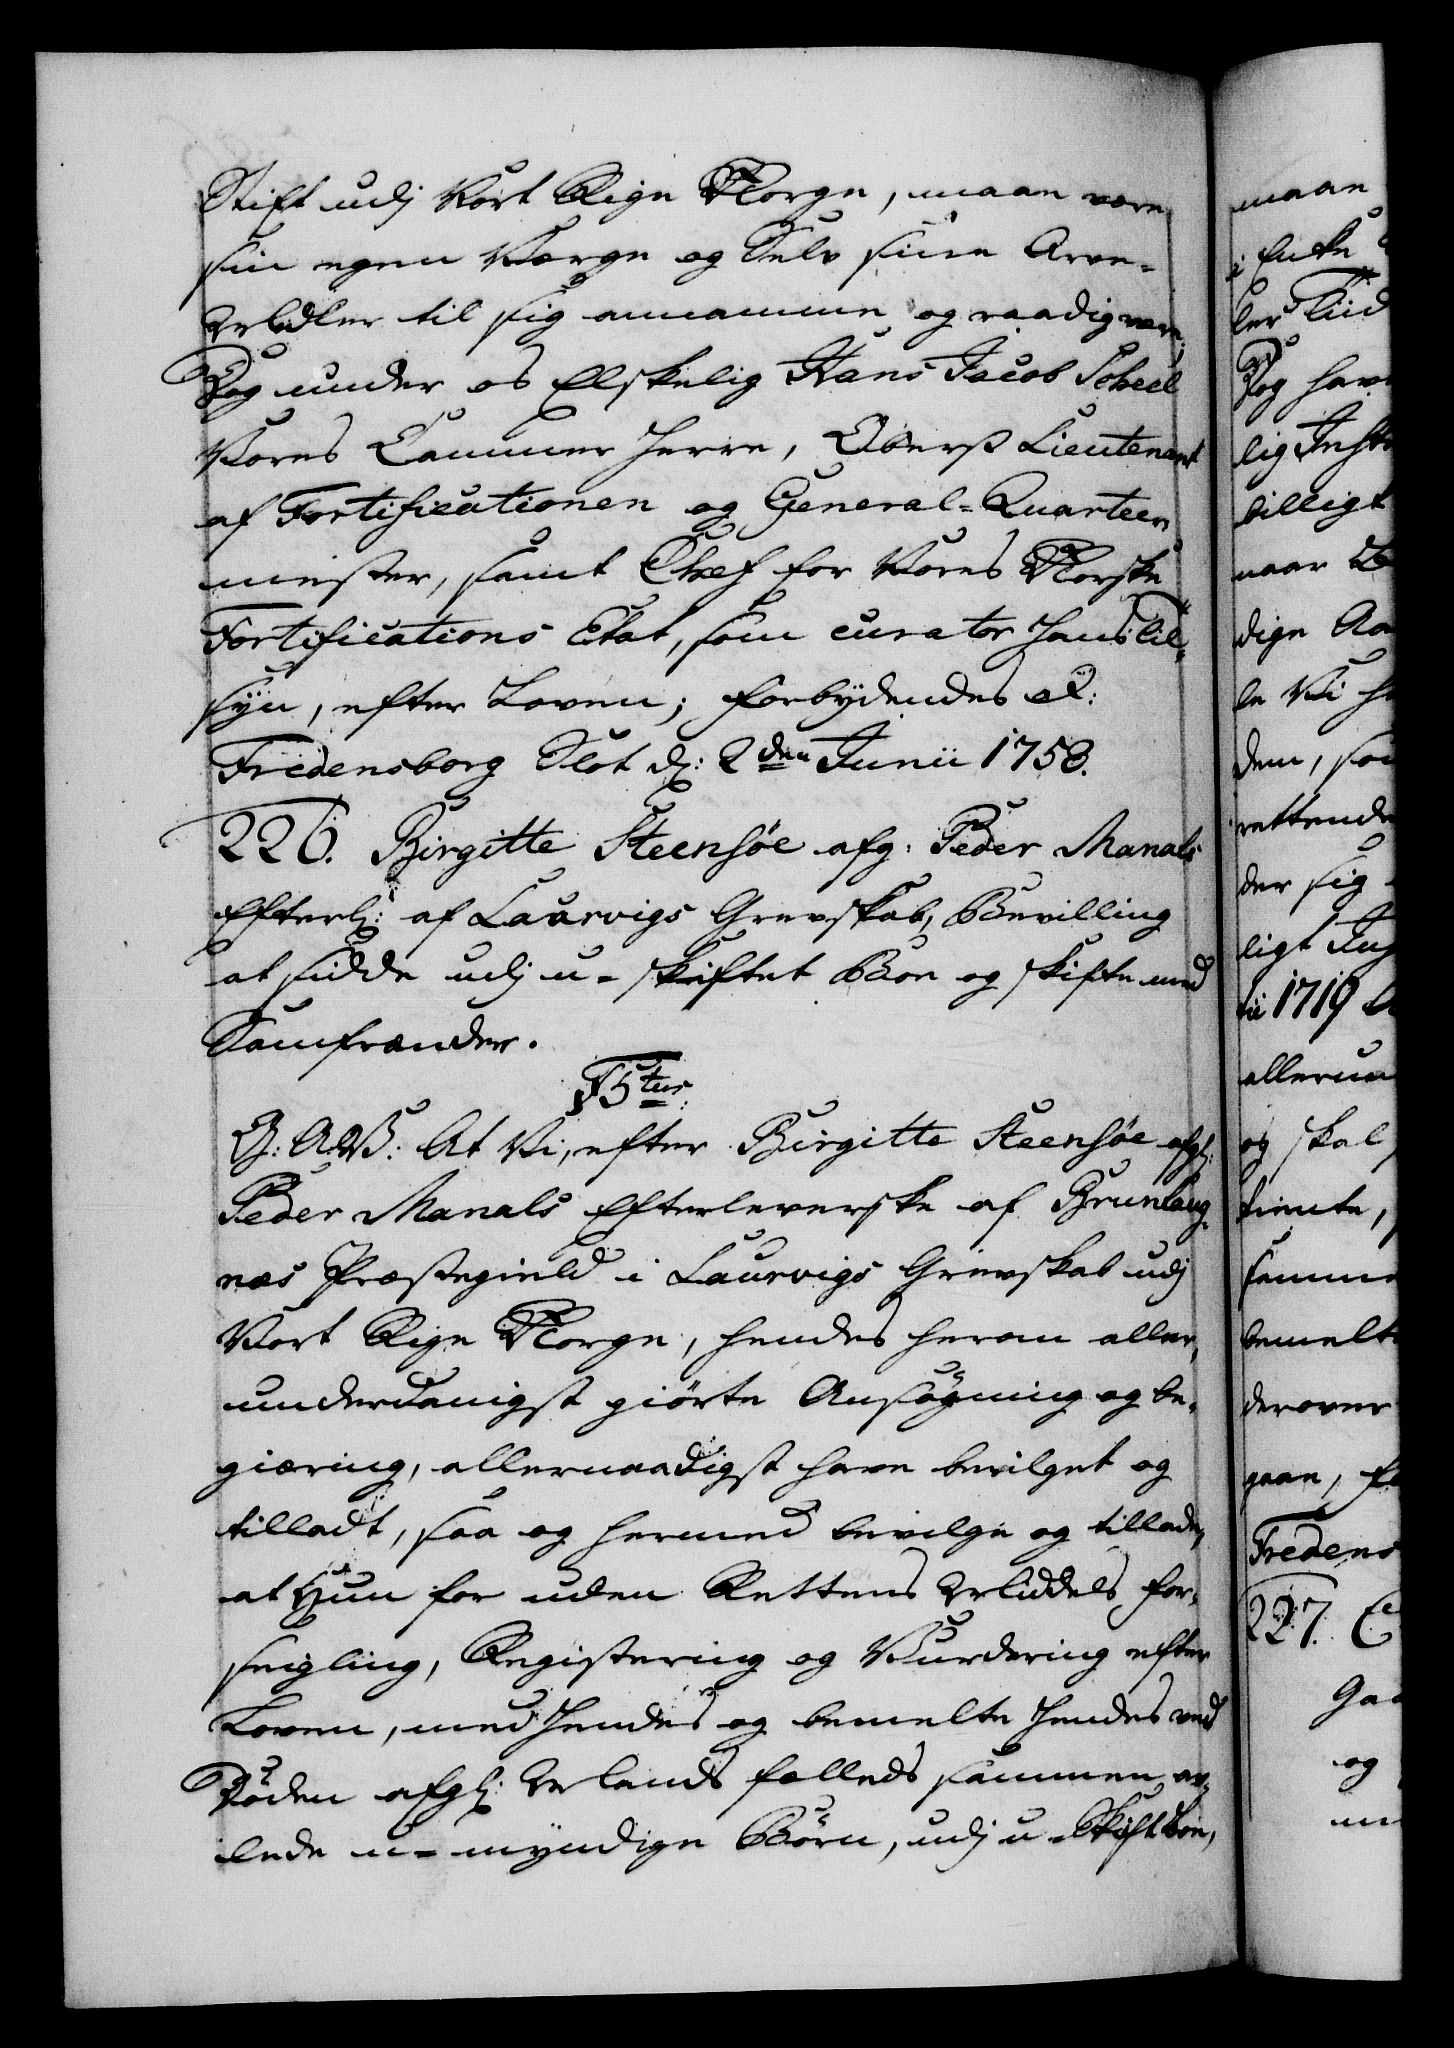 Stift udj Vort Rige Norge, maae være
sin egen Værge og Selv sine Arve-
Midler til sig annamme og raadig være;
Dog under os Elskelig Hans Jacob Scheel
Vores Cammer Herre, Oberst Lieutenant
af Fortificationen og General-Quarteer
mester, samt Chef for Vores Norske
Fortifications Etat, som curator hans Til-
syn, efter Loven; Forbydendes &:
Fredensborg Slot d: 2den Junii 1758.
226. Birgitte Steensøe afg: Peder Manals
Efterl: af Laurvigs Grevskab, Bevilling
at sidde udj u-skiftet Boe og skifte med
Samfrænder.
F5tus.
G: A: V: At Vi, efter Birgitte Steensøe afgl:
Peder Manals Efterleverske af Brunlaug-
næs Præstegield i Laurvigs Grevskab udj
Vort Rige Norge, hendes herom aller-
underdanigst giorte Ansøgning og be-
giæring, allernaadigst have bevilget og
tilladt, saa og hermed bevilge og tillade,
at Hun for uden Rettens Middels for-
segling, Registering og Vurdering efter
Loven, med hendes og bemelte hendes ved
Døden afgl: Mands fælleds sammen av-
lede u-myndige Børn, udj u-Skift Boe,
maae
i Enke
ler Tiid
Dog have
lig
billigt
naar
dige
le Vi
dem,
rettende
der sig
ligt
ii 1719
allerun
og skal
tiente,
samme
bemelte
derover
gaae,
Fredens
227. C
og